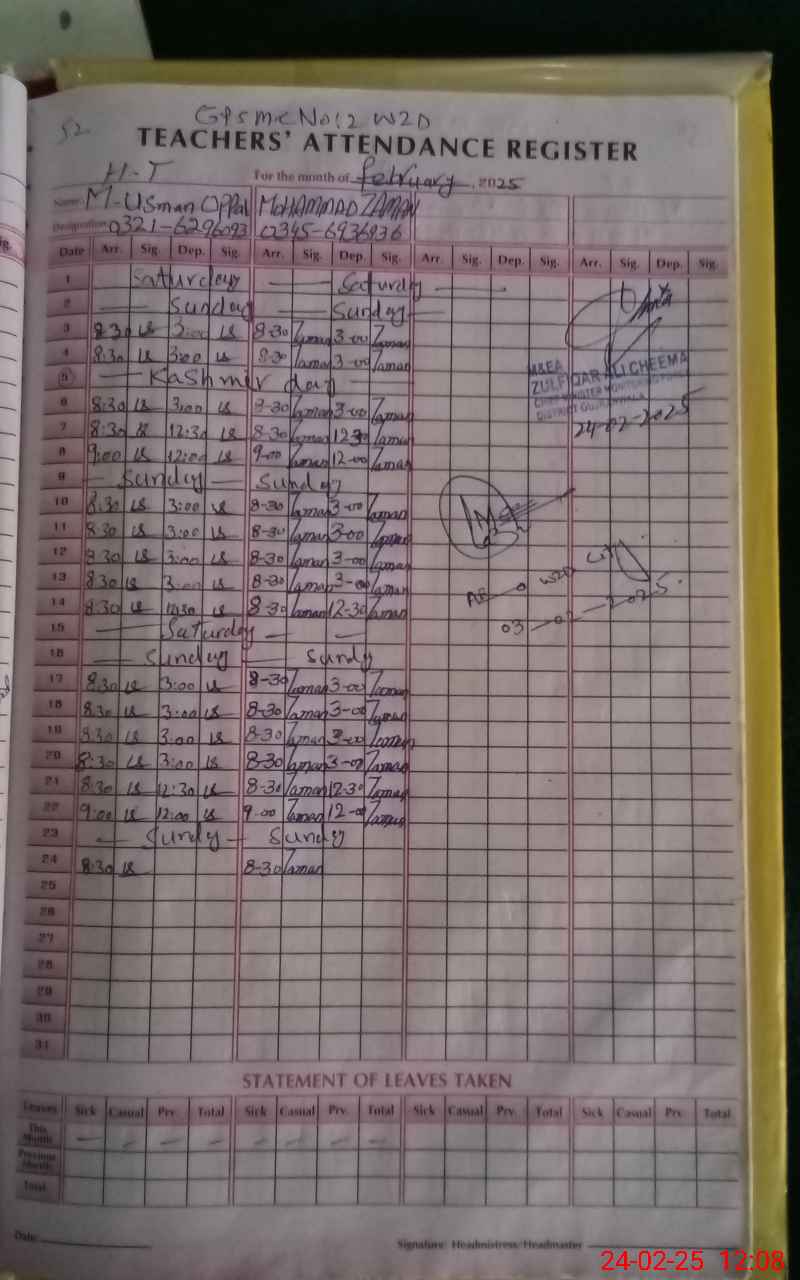 52
GPS MC No: 2 WZD
TEACHERS' ATTENDANCE REGISTER
H-T For the month of February, 2025
Name M-Usman Oppal MOHAMMAD ZAMAN
Designation 0321-6296093 0345-6936936
Date Arr. Sig. Dep. Sig. Arr. Sig. Dep. Sig. Arr. Sig. Dep. Sig. Arr. Sig. Dep. Sig.
1 Saturday Saturdy
2 Sunday Sunday
3 8:30 us 3:00 us 8-30 Zaman 3-00 Zaman
4 8:30 us 3:00 us 8-30 Zaman 3-00 Zaman
5 Kashmir day
M&EA
ZULFIQAR ALI CHEEMA
24-02-2025
6 8:30 us 3:00 us 8-30 Zaman 3-00 Zaman
7 8:30 us 12:30 us 8-30 Zaman 12-30 Zaman
8 9:00 us 12:00 us 9-00 Zaman 12-00 Zaman
9 Sunday Sunday
10 8:30 us 3:00 us 8-30 Zaman 3-00 Zaman
11 8:30 us 3:00 us 8-30 Zaman 3-00 Zaman
12 8:30 us 3:00 us 8-30 Zaman 3-00 Zaman
13 8:30 us 3:00 us 8-30 Zaman 3-00 Zaman
14 8:30 us 12:30 us 8-30 Zaman 12-30 Zaman
03-02-2025
15 Saturday
16 Sunday Sundy
17 8:30 us 3:00 us 8-30 Zaman 3-00 Zaman
18 8:30 us 3:00 us 8-30 Zaman 3-00 Zaman
19 8:30 us 3:00 us 8-30 Zaman 3-00 Zaman
20 8:30 us 3:00 us 8-30 Zaman 3-00 Zaman
21 8:30 us 12:30 us 8-30 Zaman 12-30 Zaman
22 9:00 us 12:00 us 9-00 Zaman 12-00 Zaman
23 Sunday Sunday
24 8:30 us 8-30 Zaman
25
26
27
28
29
30
31
STATEMENT OF LEAVES TAKEN
Leaves Sick Casual Prv. Total Sick Casual Prv. Total Sick Casual Prv. Total Sick Casual Prv. Total
This Month
Previous Month
Total
Date: Signature: Headmistress/Headmaster
24-02-25 12:08